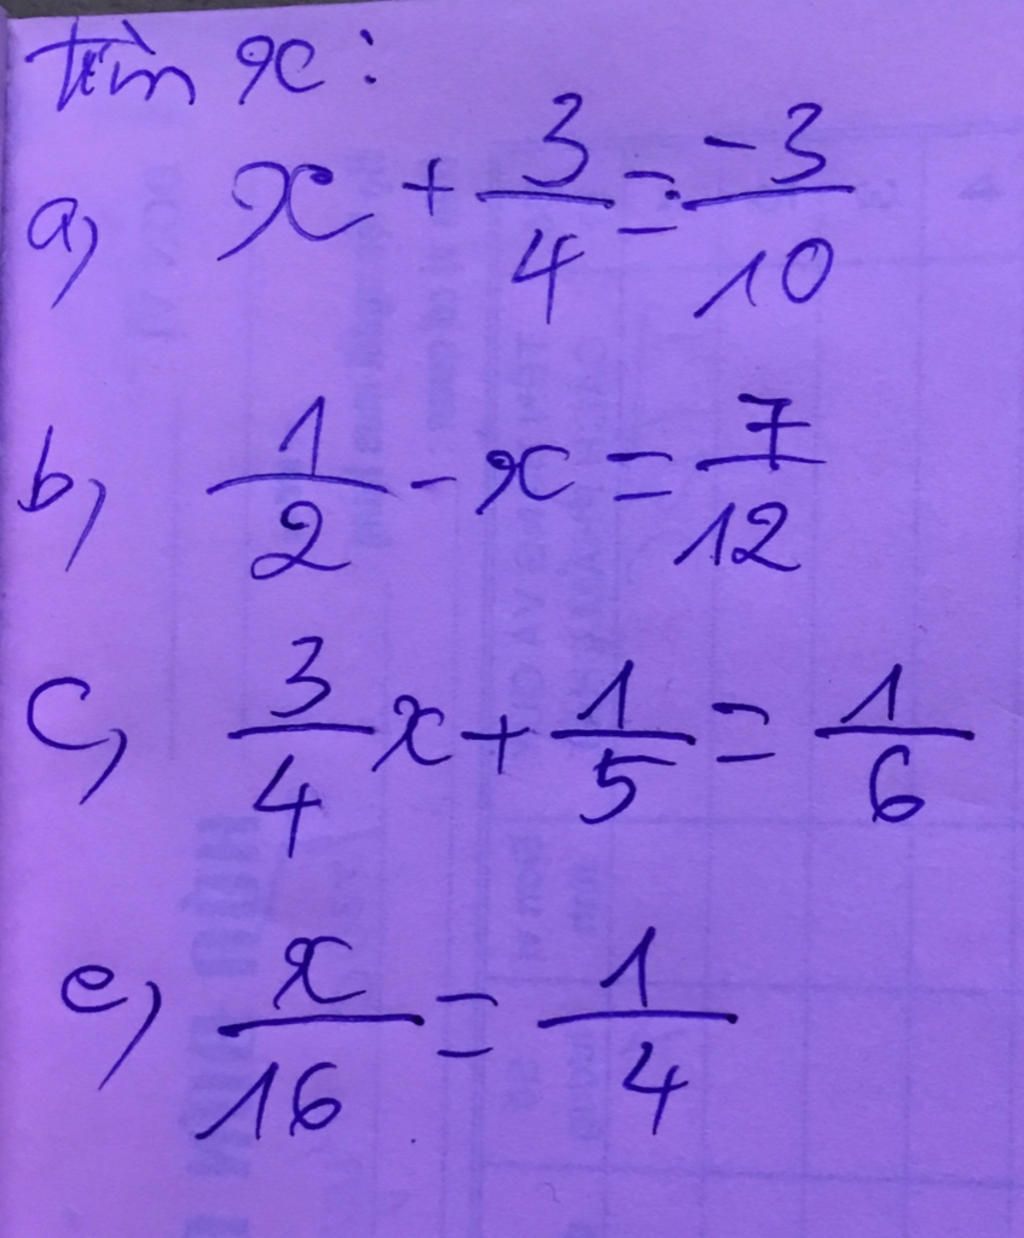 tìm x:
a, x + 3/4 = -3/10
b, 1/2 - x = 7/12
c, 3/4 x + 1/5 = 1/6
e, x/16 = 1/4